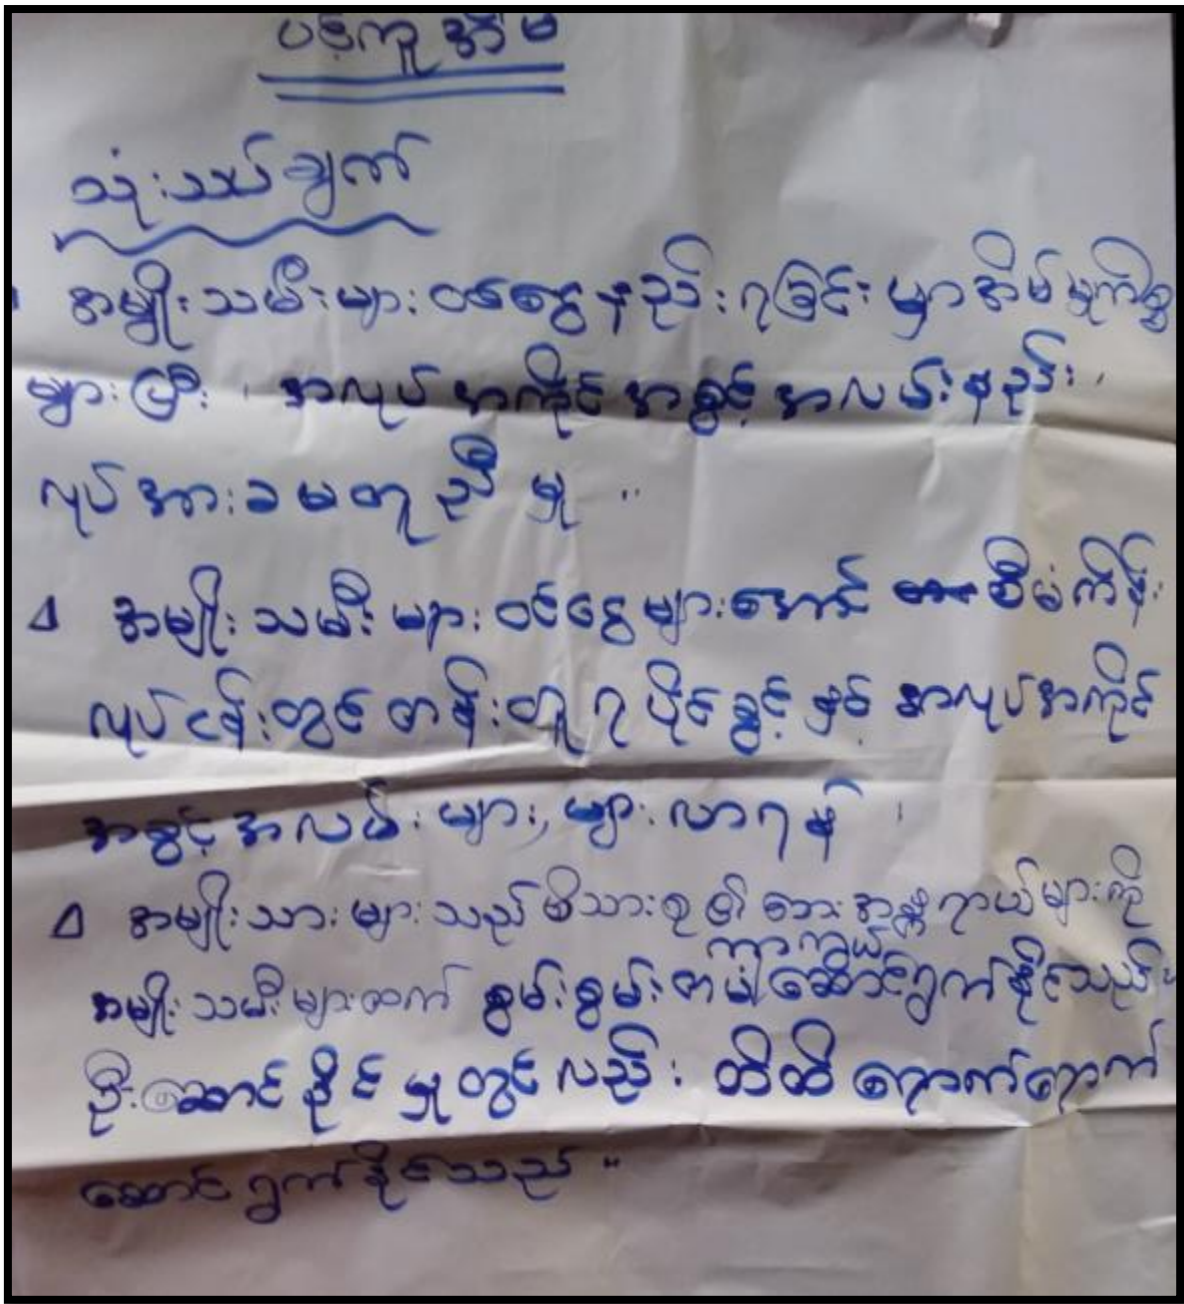 သုံးသပ်ချက်
အမျိုးသမီးများ ဝင်ငွေနည်းရခြင်းမှာ အိမ်မှုကိစ္စ
များပြီး၊ အလုပ်အကိုင်အခွင့်အလမ်းနည်း၊
လုပ်အားခမတူညီမှု ။
△ အမျိုးသမီးများ ဝင်ငွေများအောင် စီမံကိန်း
လုပ်ငန်းတွင် တန်းတူရပိုင်ခွင့်နှင့် အလုပ်အကိုင်
အခွင့်အလမ်းများ, များလာရန် ၊
△ အမျိုးသားများသည် မိသားစု၏ ဘေးအန္တရာယ်များကို
ကာကွယ်
အမျိုးသမီးများထက် စွမ်းစွမ်းတမံ ဆောင်ရွက်နိုင်သည်။
ဦးဆောင်နိုင်မှုတွင်လည်း ထိထိရောက်ရောက်
ဆောင်ရွက်နိုင်သည် ။